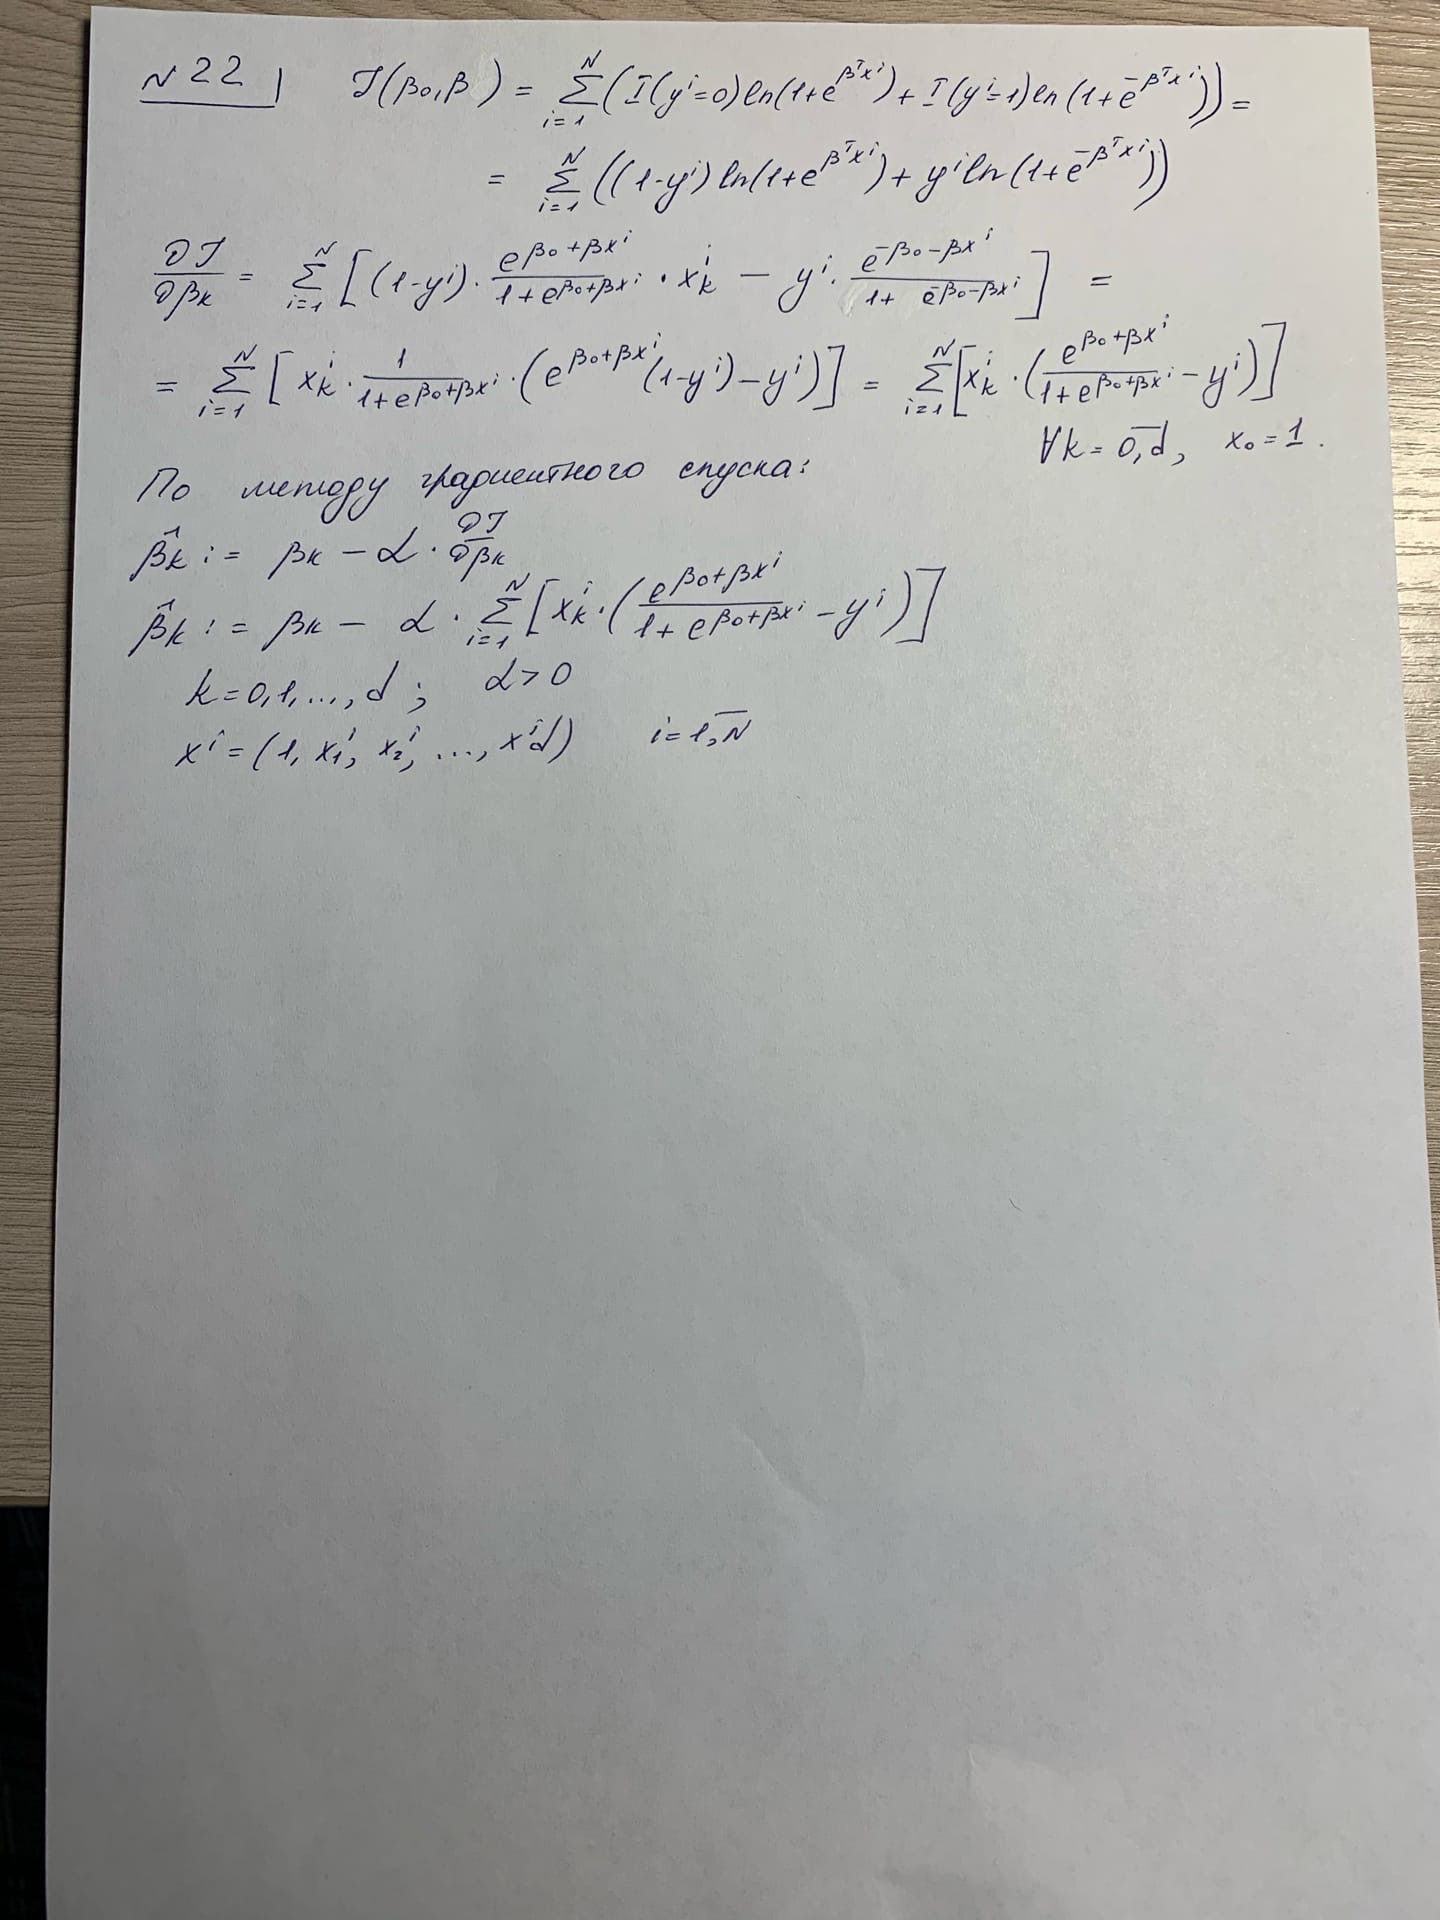 N 22 J(β₀,β) = Σ_{i=1}^{N} (I(yⁱ=0) ln(1+e^{βᵀxⁱ}) + I(yⁱ=1) ln(1+e^{-βᵀxⁱ})) =
= Σ_{i=1}^{N} ((1-yⁱ) ln(1+e^{βᵀxⁱ}) + yⁱ ln(1+e^{-βᵀxⁱ}))
∂J/∂βₖ = Σ_{i=1}^{N} [(1-yⁱ) · e^{β₀+βxⁱ}/(1+e^{β₀+βxⁱ}) · xₖⁱ — yⁱ · e^{-β₀-βxⁱ}/(1+ e^{-β₀-βxⁱ})] =
= Σ_{i=1}^{N} [xₖⁱ · 1/(1+e^{β₀+βxⁱ}) · (e^{β₀+βxⁱ}(1-yⁱ) - yⁱ)] = Σ_{i=1}^{N} [xₖⁱ · (e^{β₀+βxⁱ}/(1+e^{β₀+βxⁱ}) - yⁱ)]
∀k = \overline{0,d}, x₀ = 1.
По методу градиентного спуска:
β̂ₖ := βₖ - α · ∂J/∂βₖ
β̂ₖ := βₖ - α · Σ_{i=1}^{N} [xₖⁱ · (e^{β₀+βxⁱ}/(1+e^{β₀+βxⁱ}) - yⁱ)]
k=0,1,...,d; α>0
xⁱ = (1, x₁ⁱ, x₂ⁱ, ..., xⁱd) i=\overline{1,N}